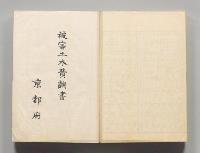 被害土木費調書
京都府